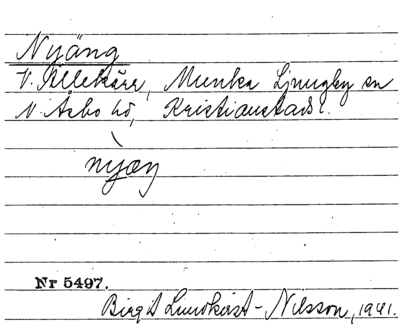 Nyäng
V. Ållekärr, Munka Ljungby sn
N. Åsbo hd, Kristianstads l.
nyæŋ
Nr 5497.
Birgit Lundkvist-Nilsson, 1941.